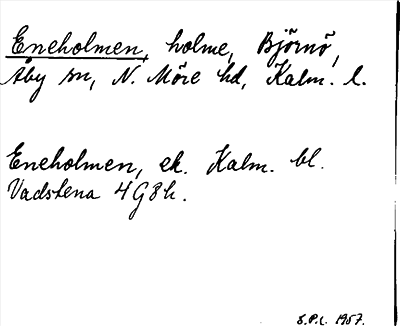 Eneholmen, holme, Björnö,
Åby sn, N. Möre hd, Kalm. l.
Eneholmen, ek. Kalm. bl.
Vadstena 4G8h.
S.P.L. 1957.